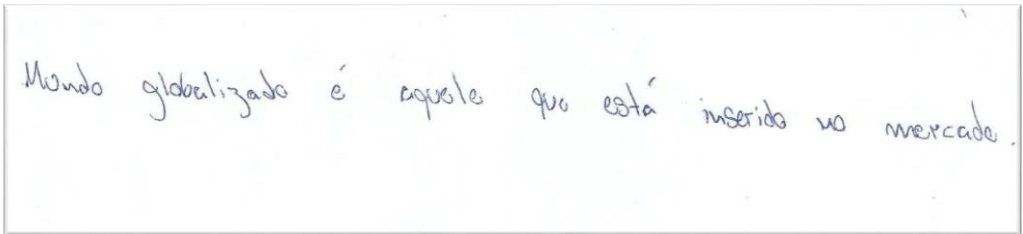 Mundo globalizado é aquele que está inserido no mercado.